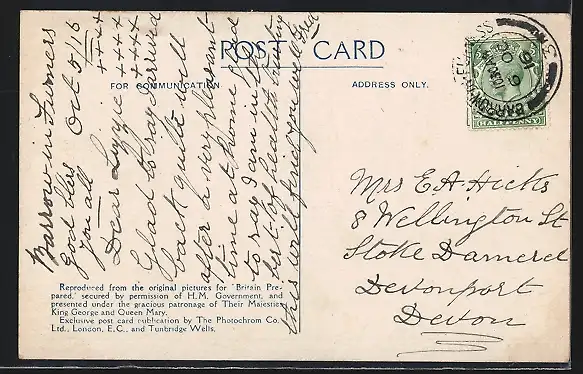 POST CARD
FOR COMMUNICATION
ADDRESS ONLY.
Barrow in Furness
Oct 5/16
God bless
you all
++++
++++
++++
Dear Lizzie
Glad to say arrived
back quite well
after a very pleasant
time at home. Glad
to say I am in the
best of health hoping
this will find you well Fred
Mrs E. A. Hicks
8 Wellington St
Stoke Damerel
Devonport
Devon
BARROW
HALFPENNY
Reproduced from the original pictures for "Britain Pre-
pared," secured by permission of H.M. Government, and
presented under the gracious patronage of Their Majesties
King George and Queen Mary.
Exclusive post card publication by The Photochrom Co.
Ltd., London, E.C., and Tunbridge Wells.